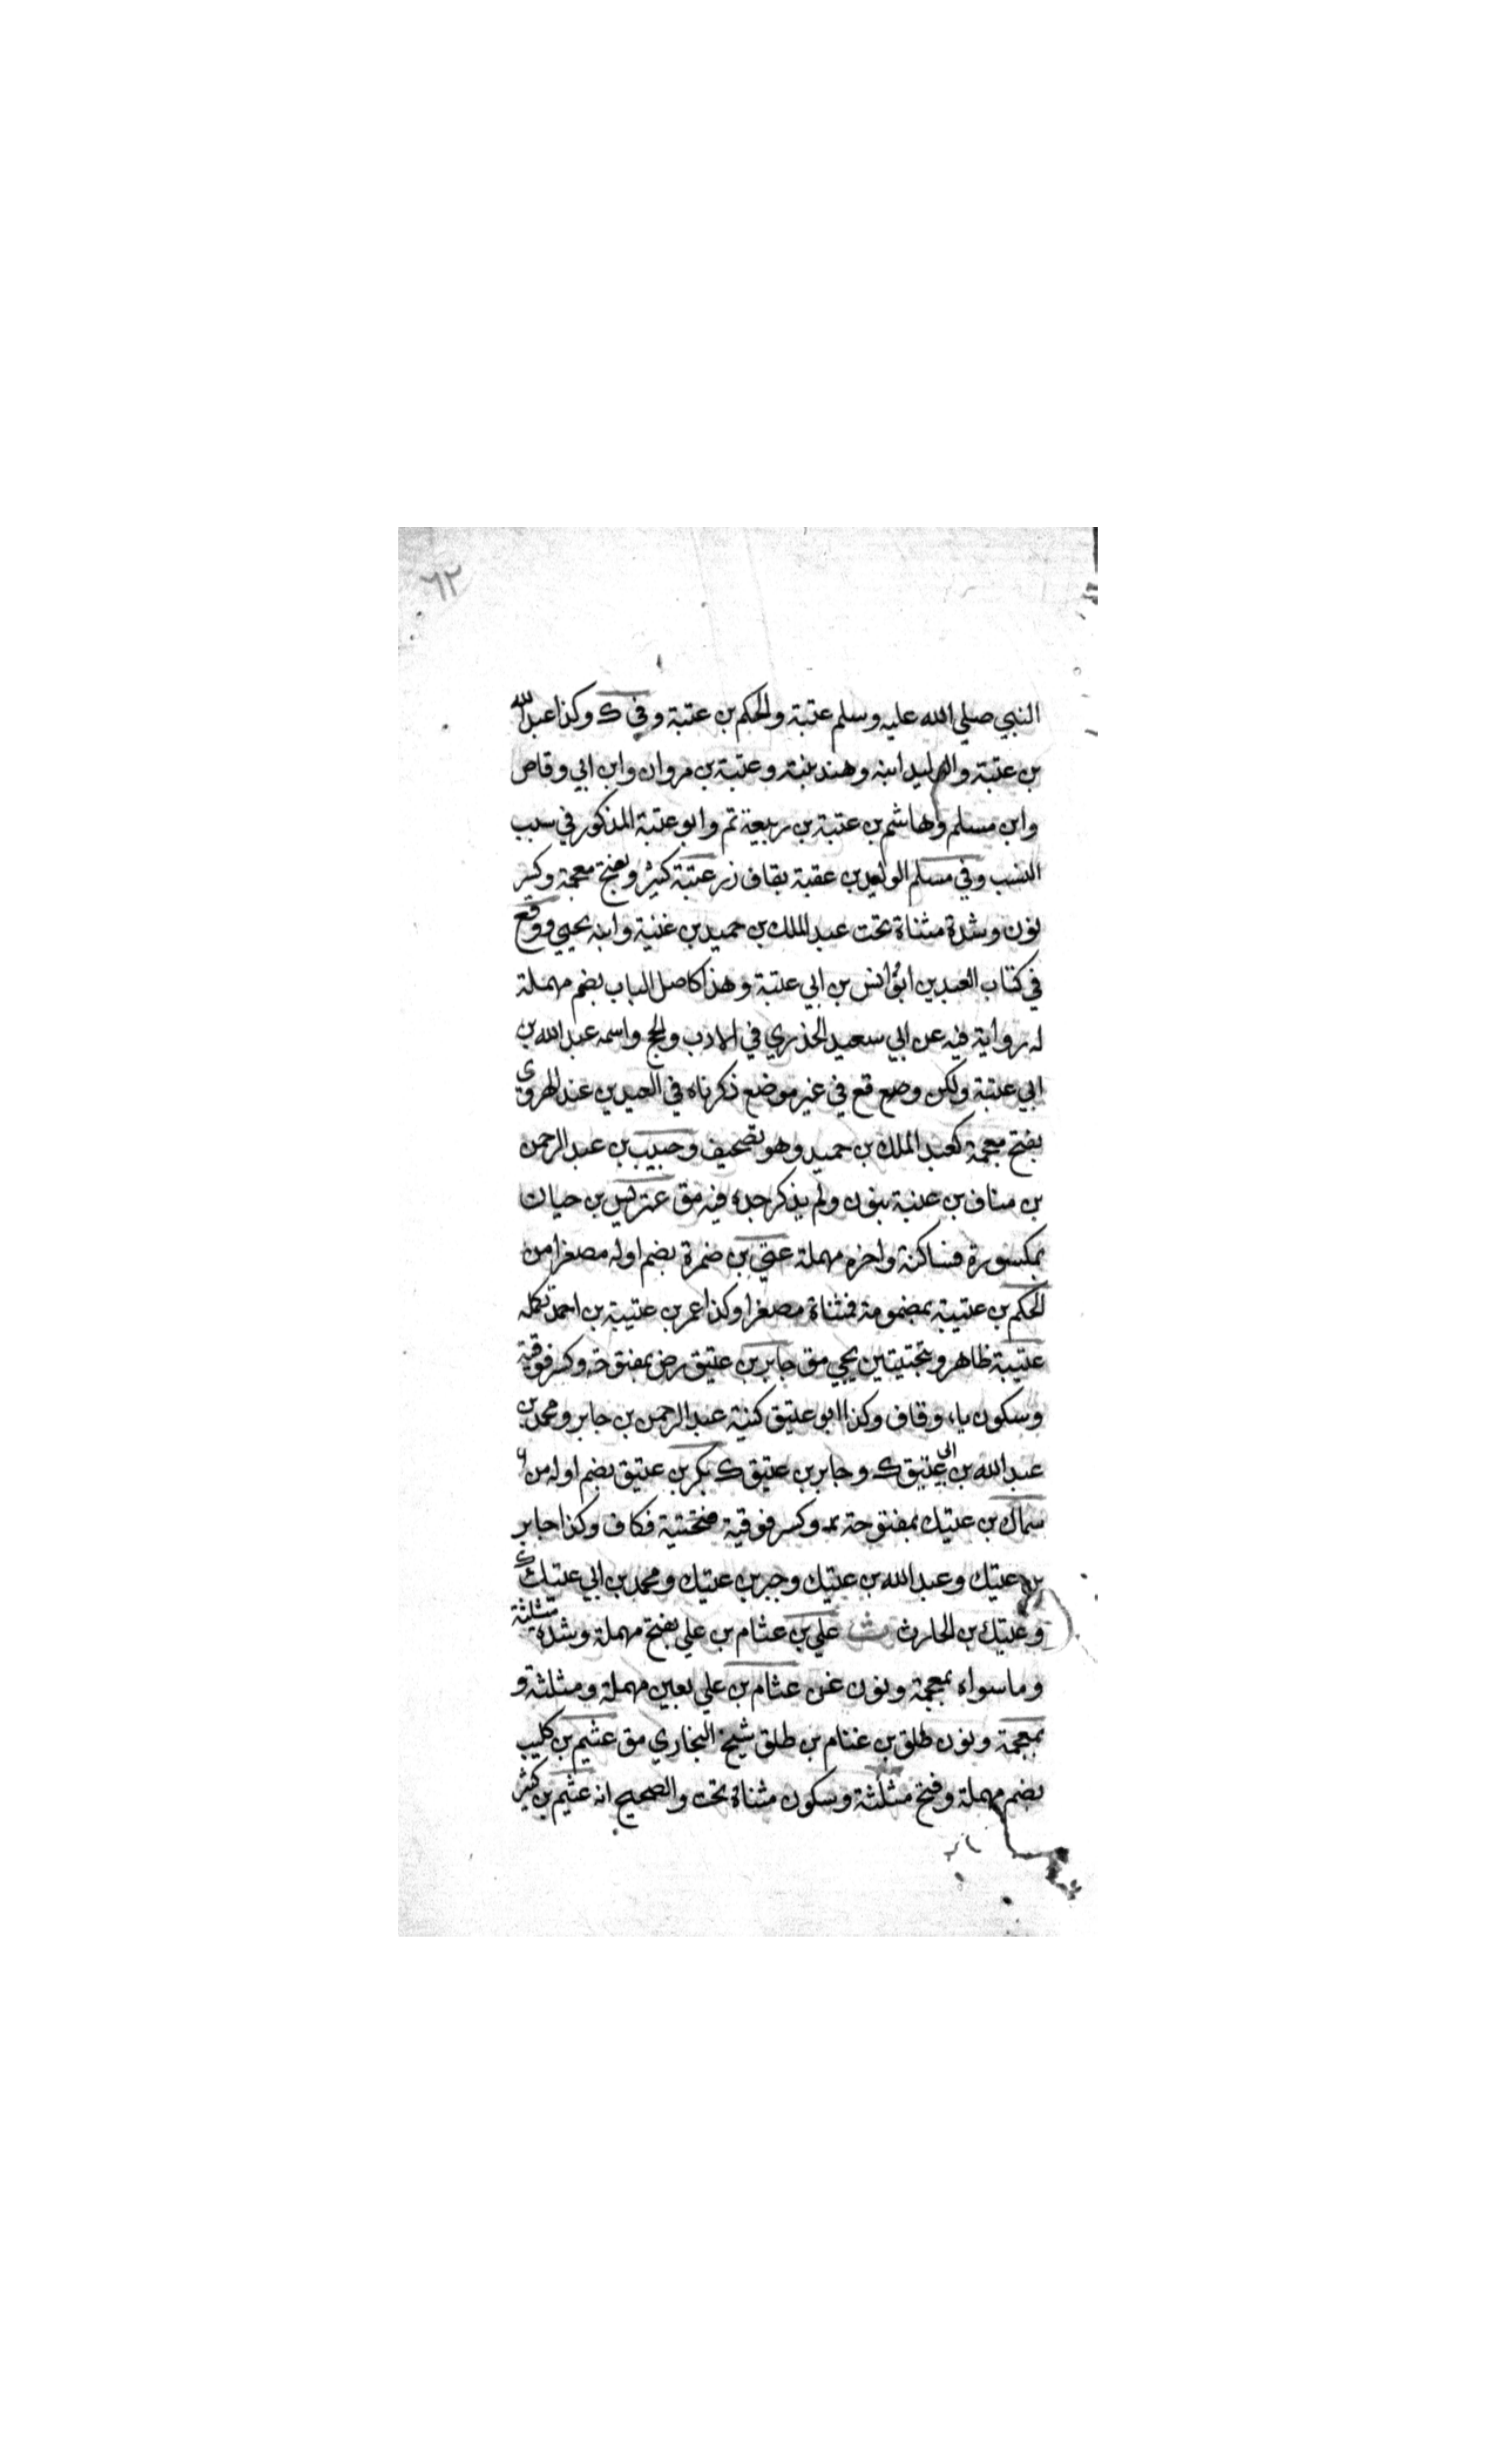 ٦٢
النبي صلي الله عليه وسلم عتبة والحكم بن عتبة وفي ك وكذا عبد الله
بن عتبة والوليد ابنه وهند بنته وعتبة بن مروان وابن ابي وقاص
وابن مسلم وهاشم بن عتبة بن ربيعة تم وابو عتبة المذكور في سبب
النسب وفي مسلم الوليد بن عقبة بقاف زر عتبة كثير وبفتح معجمة وكسر
نون وشدة مثناة تحت عبد الملك بن حميد بن غنية وابنه يحيي ووقع
في كتاب العيدين انس بن ابي عتبة وهذا كاصل الباب بضم مهملة
له رواية فيه عن ابي سعيد الخذري في الادب والحج واسمه عبد الله بن
ابي عتبة ولكن وقع في غير موضع ذكرناه في العيدين عند الهروي
بفتح معجمة كعبد الملك بن حميد وهو تصحيف وحبيب بن عبد الرحمن
بن مناف بن عنبة بنون ولم يذكر جده فيه مق عتريس بن حيان
بمكسورة فساكنة واخره مهملة عتي بن ضمرة بضم اوله مصغرا من
الحكم بن عتيبة بمضمومة فمثناة مصغرا وكذا عمر بن عتيبة بن احمد تكمله
عتيبة ظاهر وبتحتيتين يحيي مق جابر بن عتيق رض بمفتوحة وكسر فوقية
وسكون ياء وقاف وكذا ابو عتيق كنية عبد الرحمن بن جابر ومحمد بن
عبد الله بن ابي عتيق ك وجابر بن عتيق ك بكر بن عتيق بضم اوله من
سماك بن عتيك بمفتوحة وكسر فوقية فتحتية فكاف وكذا جابر
بن عتيك وعبد الله بن عتيك وجبر بن عتيك ومحمد بن ابي عتيك ك
وعتيك بن الحارث ث علي بن عثام بن علي بفتح مهملة وشدة مثلثة
وما سواه بمعجمة ونون غن عثام بن علي بعين مهملة ومثلثة و
بمعجمة ونون طلق بن غنام بن طلق شيخ البخاري مق عثيم بن كليب
بضم مهملة وفتح مثلثة وسكون مثناة تحت والصحيح انه عثيم بن كثير